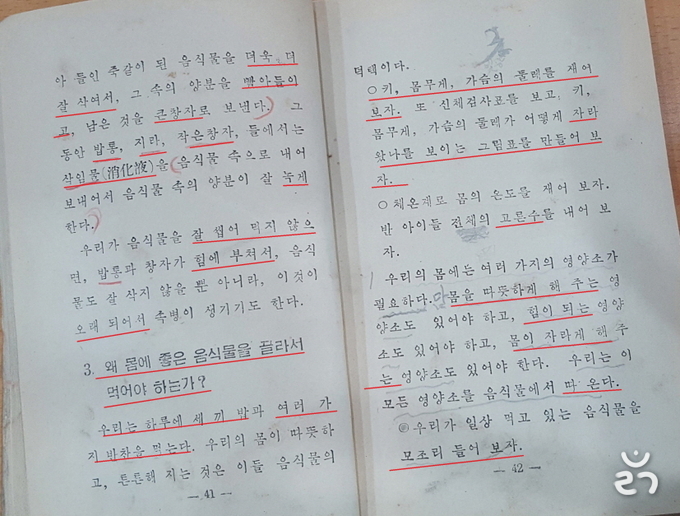 아 들인 죽같이 된 음식물을 더욱 더
잘 삭여서, 그 속의 양분을 빨아들이
고, 남은 것을 큰창자로 보낸다. 그
동안 밥통, 지라, 작은창자, 들에서는
삭임물(消化液)을 음식물 속으로 내어
보내어서 음식물 속의 양분이 잘 녹게
한다.
우리가 음식물을 잘 씹어 먹지 않으
면, 밥통과 창자가 힘에 부쳐서, 음식
물도 잘 삭지 않을 뿐 아니라, 이것이
오래 되어서 속병이 생기기도 한다.
3. 왜 몸에 좋은 음식물을 골라서
먹어야 하는가?
우리는 하루에 세 끼 밥과 여러 가
지 반찬을 먹는다. 우리의 몸이 따뜻하
고, 튼튼해 지는 것은 이들 음식물의
— 41 —
덕택이다.
○키, 몸무게, 가슴의 둘레를 재어
보자. 또 신체검사표를 보고, 키,
몸무게, 가슴의 둘레가 어떻게 자라
왔나를 보이는 그림표를 만들어 보
자.
○체온재로 몸의 온도를 재어 보자.
반 아이들 전체의 고른수를 내어 보
자.
우리의 몸에는 여러 가지의 영양소가
필요하다. 몸을 따뜻하게 해 주는 영
양소도 있어야 하고, 힘이 되는 영양
소도 있어야 하고, 몸이 자라게 해 주
는 영양소도 있어야 한다. 우리는 이
모든 영양소를 음식물에서 따 온다.
○우리가 일상 먹고 있는 음식물을
모조리 들어 보자.
— 42 —